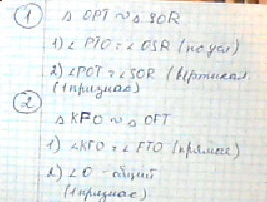 1
△ OPT ∾ △ SOR
1) ∠ PTO = ∠ OSR (по усл)
2) ∠ POT = ∠ SOR (вертикал.)
(1 признак)
2
△ KFO ∾ △ OFT
1) ∠ KFO = ∠ FTO (прямые)
2) ∠ O - общий
(1 признак)